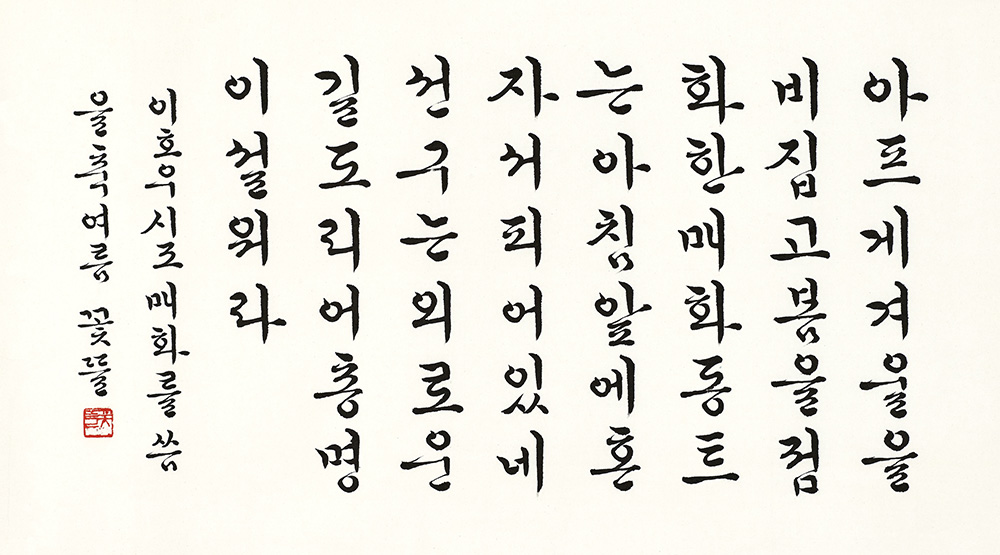 아프게겨울을
비집고봄을점
화한매화동트
는아침앞에혼
자서피어있네
선구는외로운
길도리어총명
이설워라
이호우시조매화를 씀
을축여름 꽃뜰